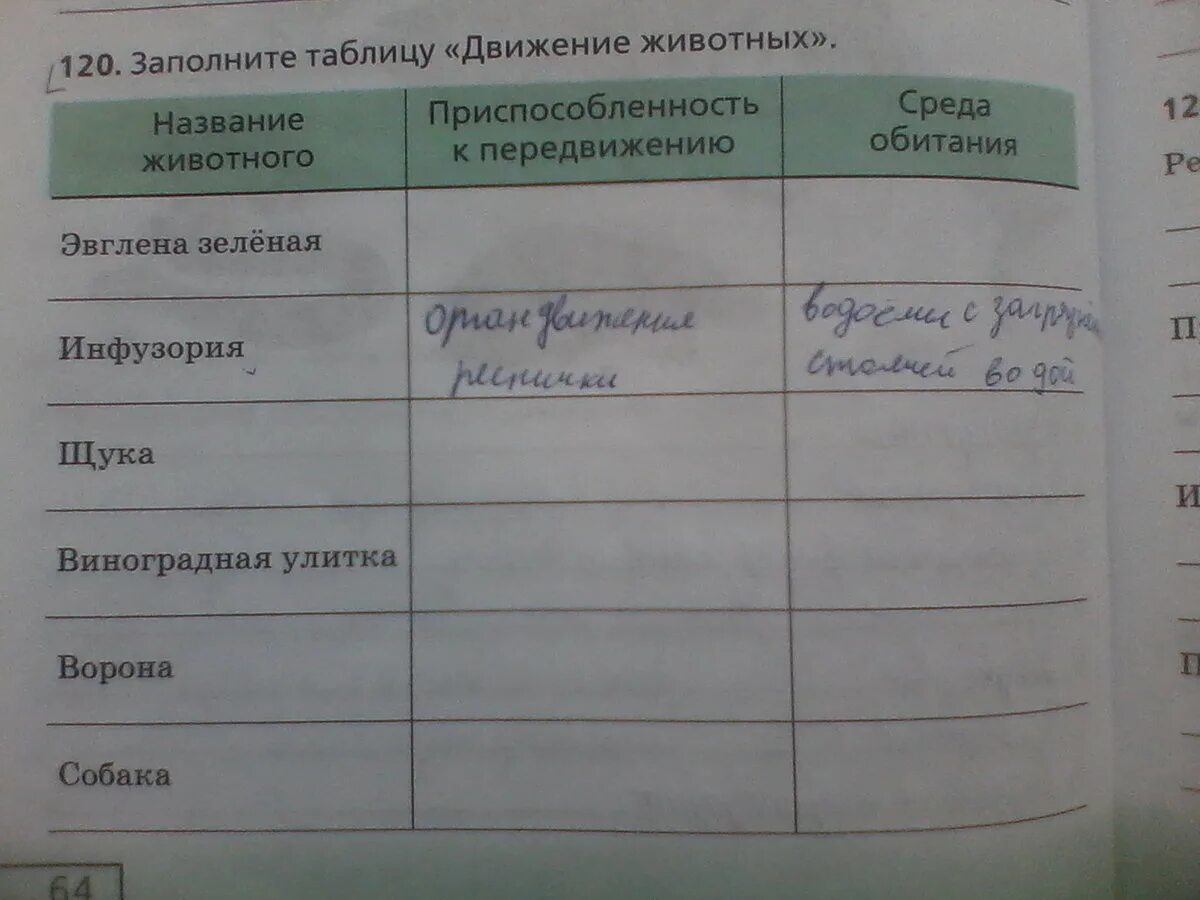 120. Заполните таблицу «Движение животных».
Название
животного
Приспособленность
к передвижению
Среда
обитания
Эвглена зелёная
Инфузория
орган движения
реснички
водоёмы с
стоячей водой
Щука
Виноградная улитка
Ворона
Собака
64
12
Ре
П
И
П